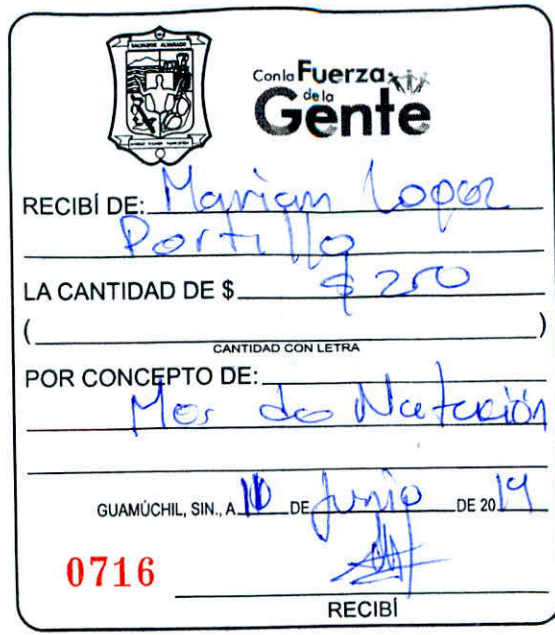 SALVADOR ALVARADO
Con la Fuerza
de la
Gente
RECIBÍ DE: Marian Lopez
Portillo
LA CANTIDAD DE $ $ 250
( )
CANTIDAD CON LETRA
POR CONCEPTO DE:
Mes de Natación
GUAMÚCHIL, SIN., A 10 DE Junio DE 2019
0716
RECIBÍ